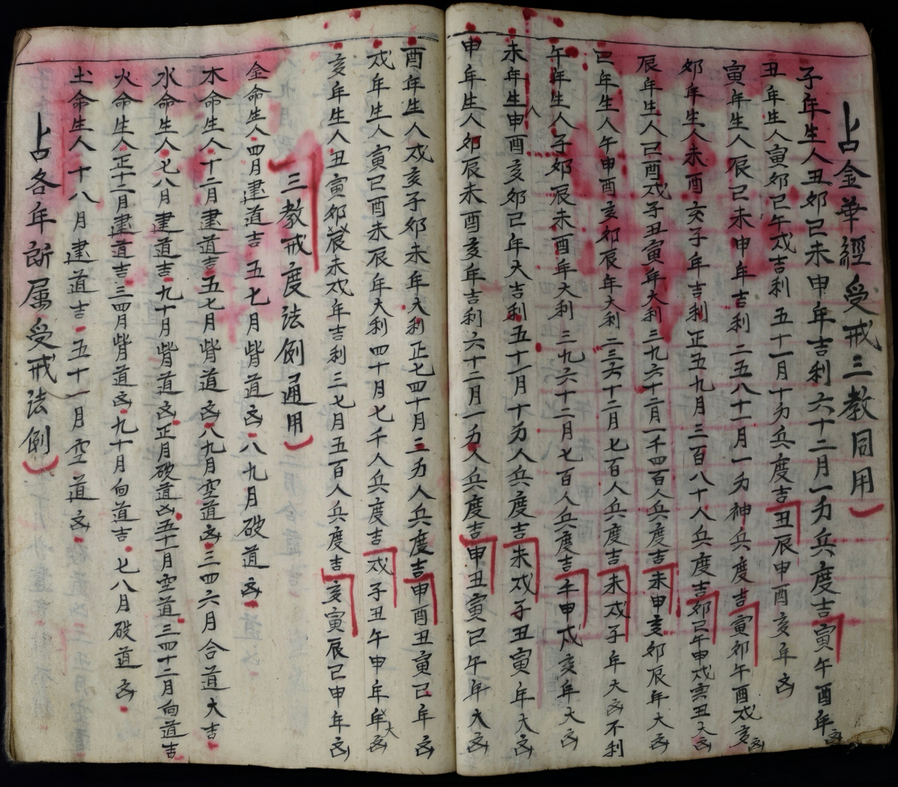 占金華經受戒三教同用
子年生人丑卯已未申年吉利六十二月一万兵度吉寅午酉年凶
丑年生人寅卯已午戌吉利五十一月十万兵度吉丑辰申酉亥年凶
寅年生人辰已未申年吉利二五八十一月一万神兵度吉寅卯午酉戌亥凶
卯年生人未酉亥子年吉利正五九月三百八十人兵度吉卯已午申戌寅丑大凶
辰年生人已酉戌子丑寅年大利三九六十二月一千四百人兵度吉未申亥卯辰年大凶
已年生人午申酉亥卯辰年大利二三六十二月七百人兵度吉未戌子年大凶不利
午年生人子卯辰未酉年大利三九六十二月七百人兵度吉午申戌亥年大凶
未年生申酉亥卯已年大吉利五十一月十万人兵度吉未戌子丑寅年大凶
申年生人卯辰未酉亥年吉利六十二月一万人兵度吉申丑寅已午年大凶
酉年生人戌亥子卯未年大利正七四十月三万人兵度吉申酉丑寅已年凶
戌年生人寅已酉未辰年大利四十月七千人兵度吉戌子丑午申年大凶
亥年生人丑寅卯辰未戌年吉利三七月五百人兵度吉亥寅辰已申年凶
三教戒度法例通用
金命生人四月建道吉五七月背道凶八九月破道凶
木命生人十二月建道吉五七月背道凶八九月空道凶三四六月合道大吉
水命生人七八月建道吉九十月背道凶正月破道凶五十一月空道三四十二月向道吉
火命生人正十二月建道吉三四月背道凶九十月向道吉七八月破道凶
土命生人十八月建道吉五十一月空道凶
占各年所属受戒法例